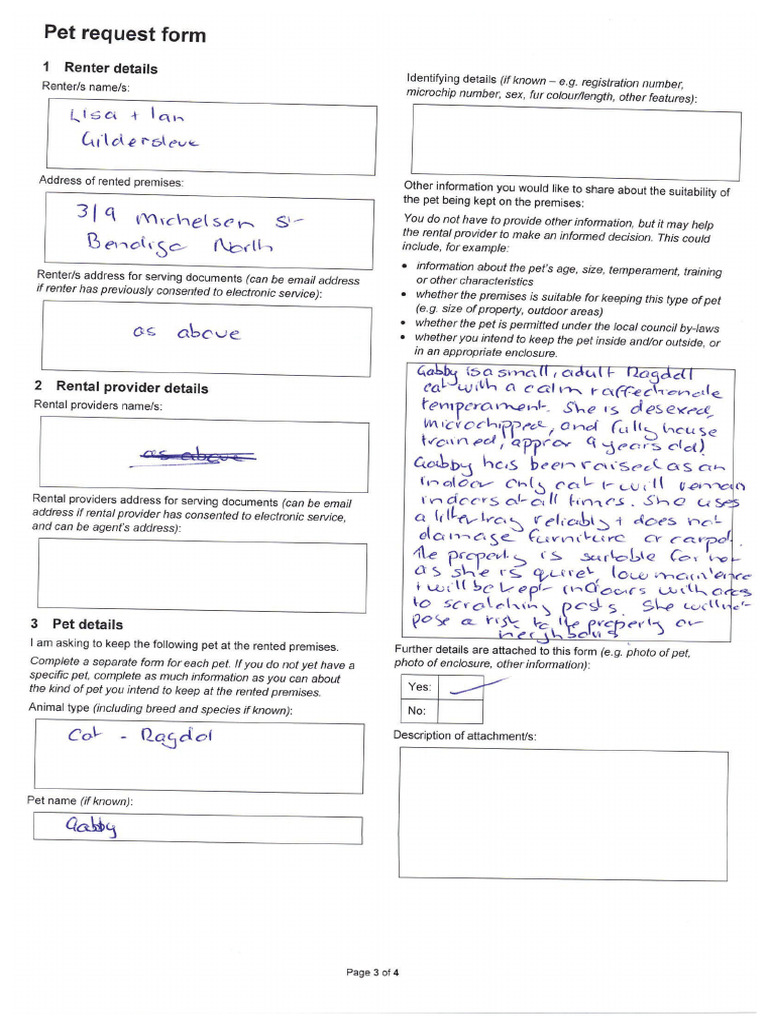 Pet request form
1 Renter details
Renter/s name/s:
Lisa + Ian
Gildersleve
Address of rented premises:
3/9 Michelsen St
Bendigo North
Renter/s address for serving documents (can be email address
if renter has previously consented to electronic service):
as above
2 Rental provider details
Rental providers name/s:
as above
Rental providers address for serving documents (can be email
address if rental provider has consented to electronic service,
and can be agent's address):
3 Pet details
I am asking to keep the following pet at the rented premises.
Complete a separate form for each pet. If you do not yet have a
specific pet, complete as much information as you can about
the kind of pet you intend to keep at the rented premises.
Animal type (including breed and species if known):
Cat - Ragdol
Pet name (if known):
Gabby
Identifying details (if known – e.g. registration number,
microchip number, sex, fur colour/length, other features):
Other information you would like to share about the suitability of
the pet being kept on the premises:
You do not have to provide other information, but it may help
the rental provider to make an informed decision. This could
include, for example:
• information about the pet's age, size, temperament, training
or other characteristics
• whether the premises is suitable for keeping this type of pet
(e.g. size of property, outdoor areas)
• whether the pet is permitted under the local council by-laws
• whether you intend to keep the pet inside and/or outside, or
in an appropriate enclosure.
Gabby is a small, adult Ragdoll
cat with a calm + affectionate
temperament. She is desexed,
microchipped, and fully house
trained, approx 9 years old!
Gabby has been raised as an
indoor only cat + will remain
indoors at all times. She uses
a litter tray reliably + does not
damage furniture or carpet.
The property is suitable for her
as she is quiet, low maintence
+ will be kept indoors with acess
to scratching posts. She will not
pose a risk to the property or
neighbours
Further details are attached to this form (e.g. photo of pet,
photo of enclosure, other information):
Yes: ✓
No:
Description of attachment/s:
Page 3 of 4